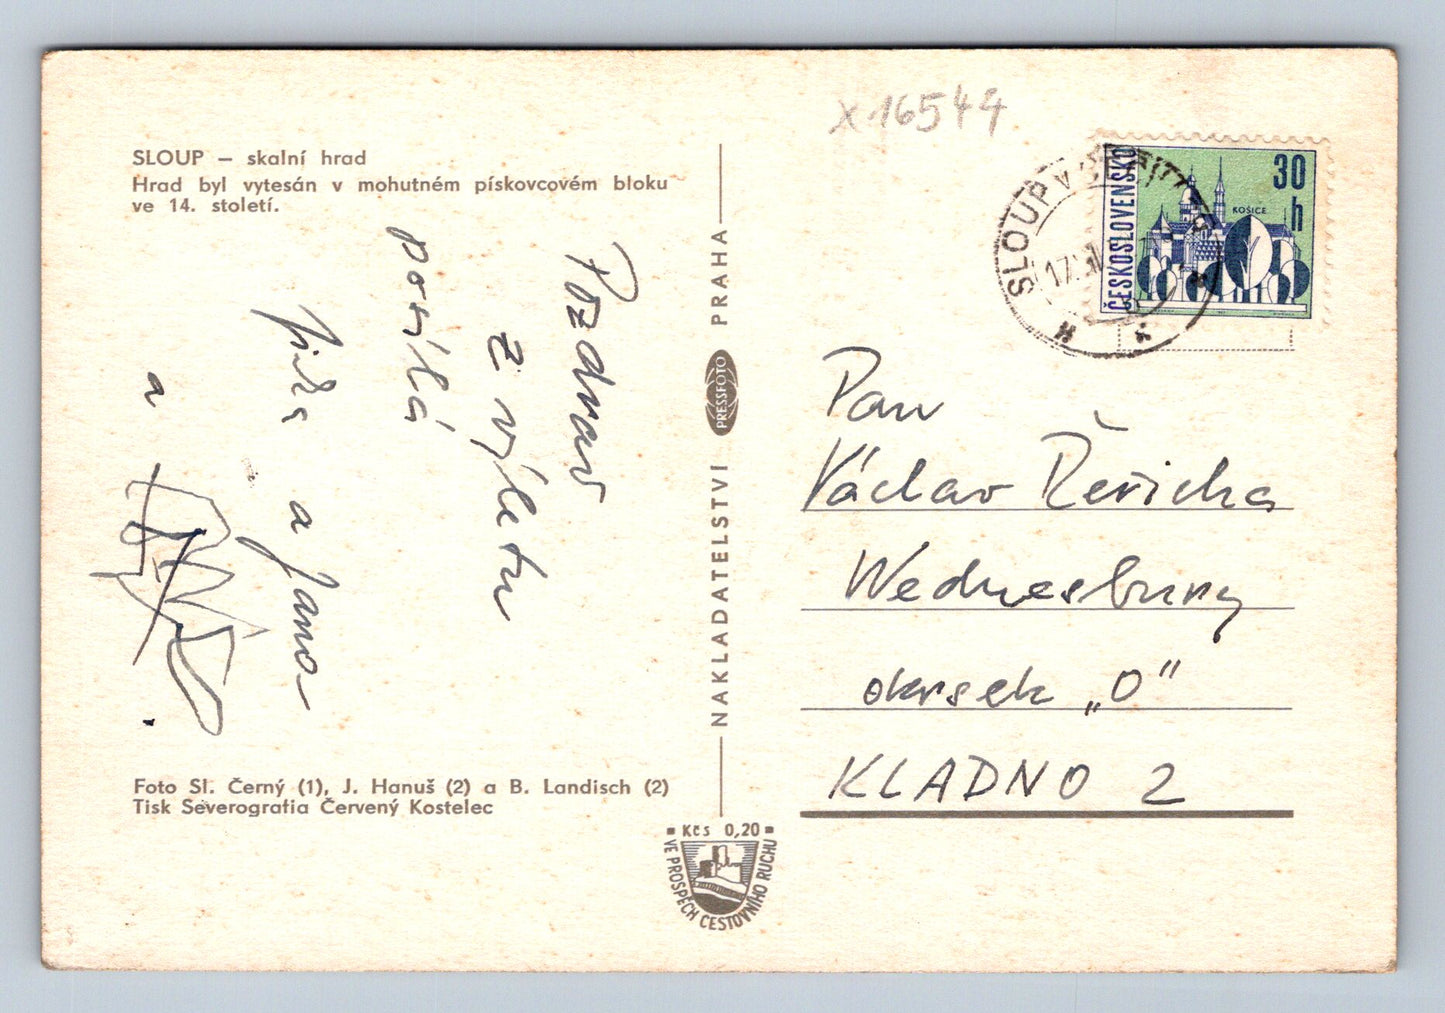 x 16544
SLOUP – skalní hrad
Hrad byl vytesán v mohutném pískovcovém bloku
ve 14. století.
Pozdrav
z výletu
posílá
Jirka a Jana
a
Foto Sl. Černý (1), J. Hanuš (2) a B. Landisch (2)
Tisk Severografia Červený Kostelec
NAKLADATELSTVÍ PRESSFOTO PRAHA
Kčs 0,20
VE PROSPĚCH CESTOVNÍHO RUCHU
SLOUP V
17
ČESKOSLOVENSKO
30
h
KOŠICE
Pan
Václav Řeřicha
Wednesbury
okrsek „O"
KLADNO 2